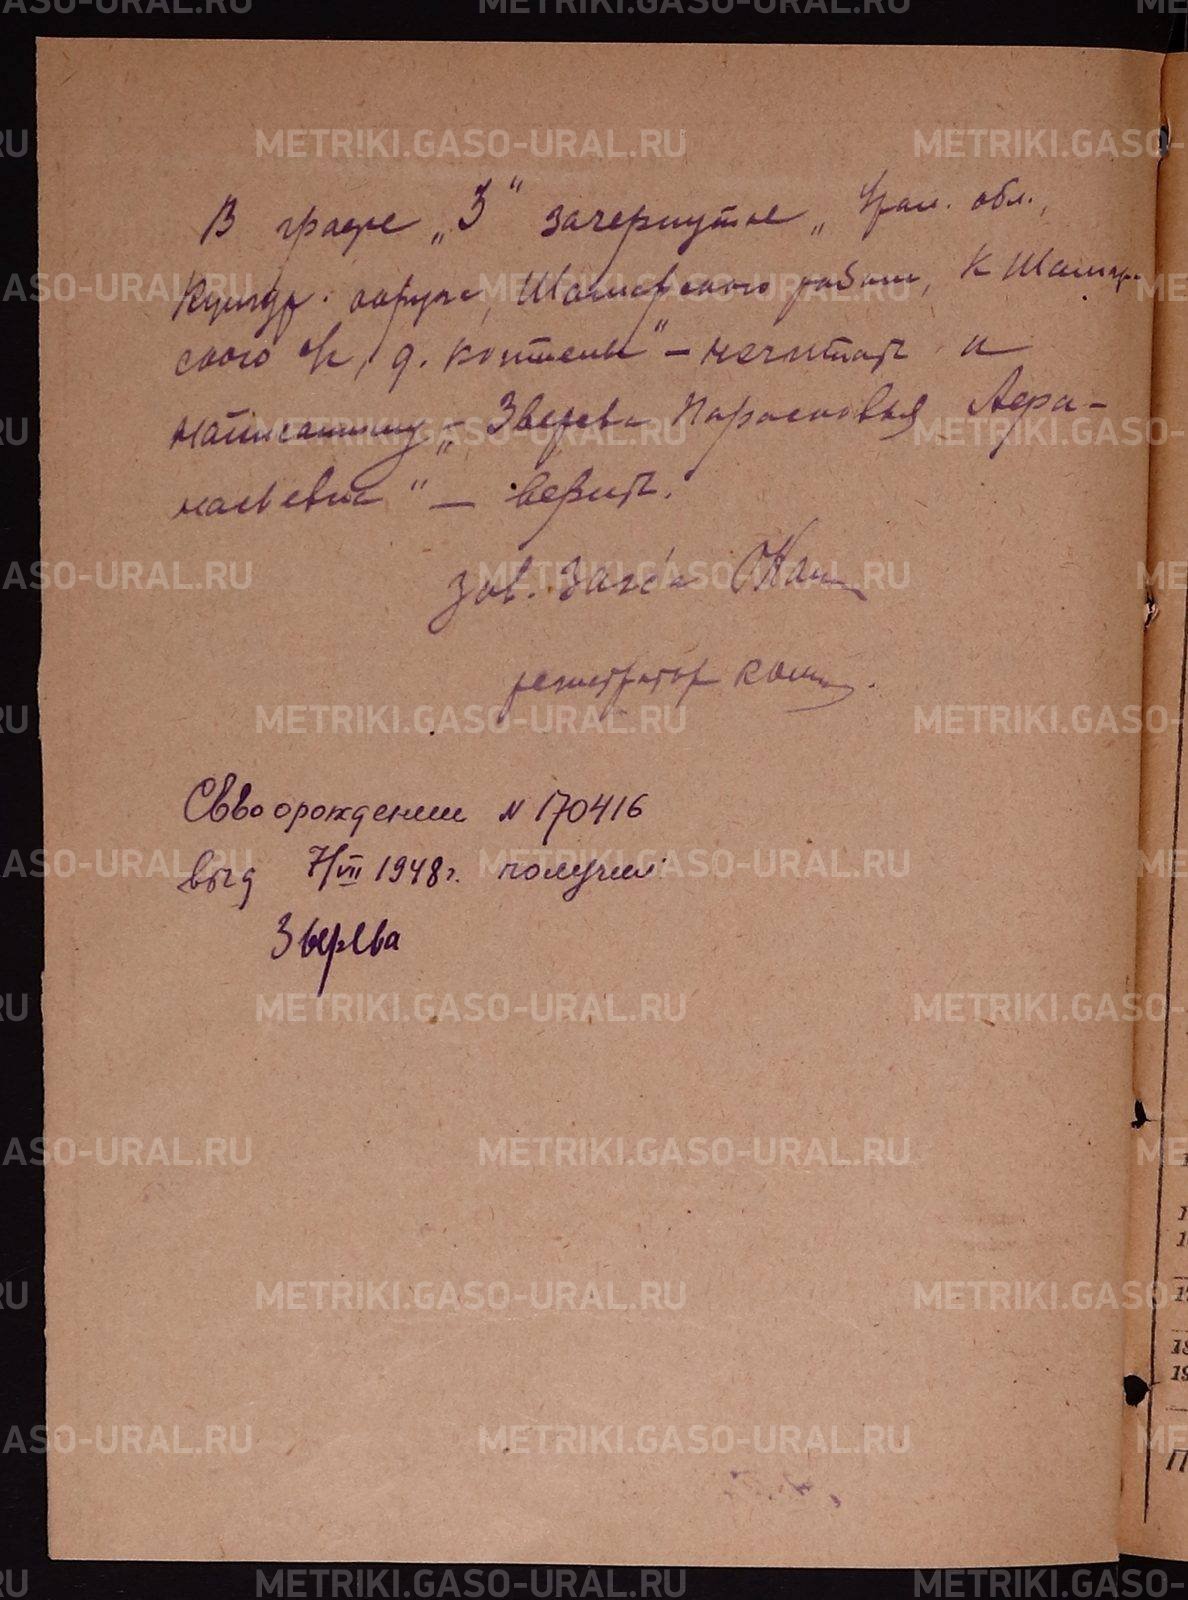 В графе „3“ зачеркнутое „Урал. обл.,
Кунгур. округа, Шамарского района, К Шамар-
ского с/с, д.
написанному „Зверева Парасковья Афа-
насьевна“ — верить.
Зав. Загса
регистратор
Св-во о рождении N 170416
выд 7/VII 1948 г. получил
Зверева
METRIKI.GASO-URAL.RU